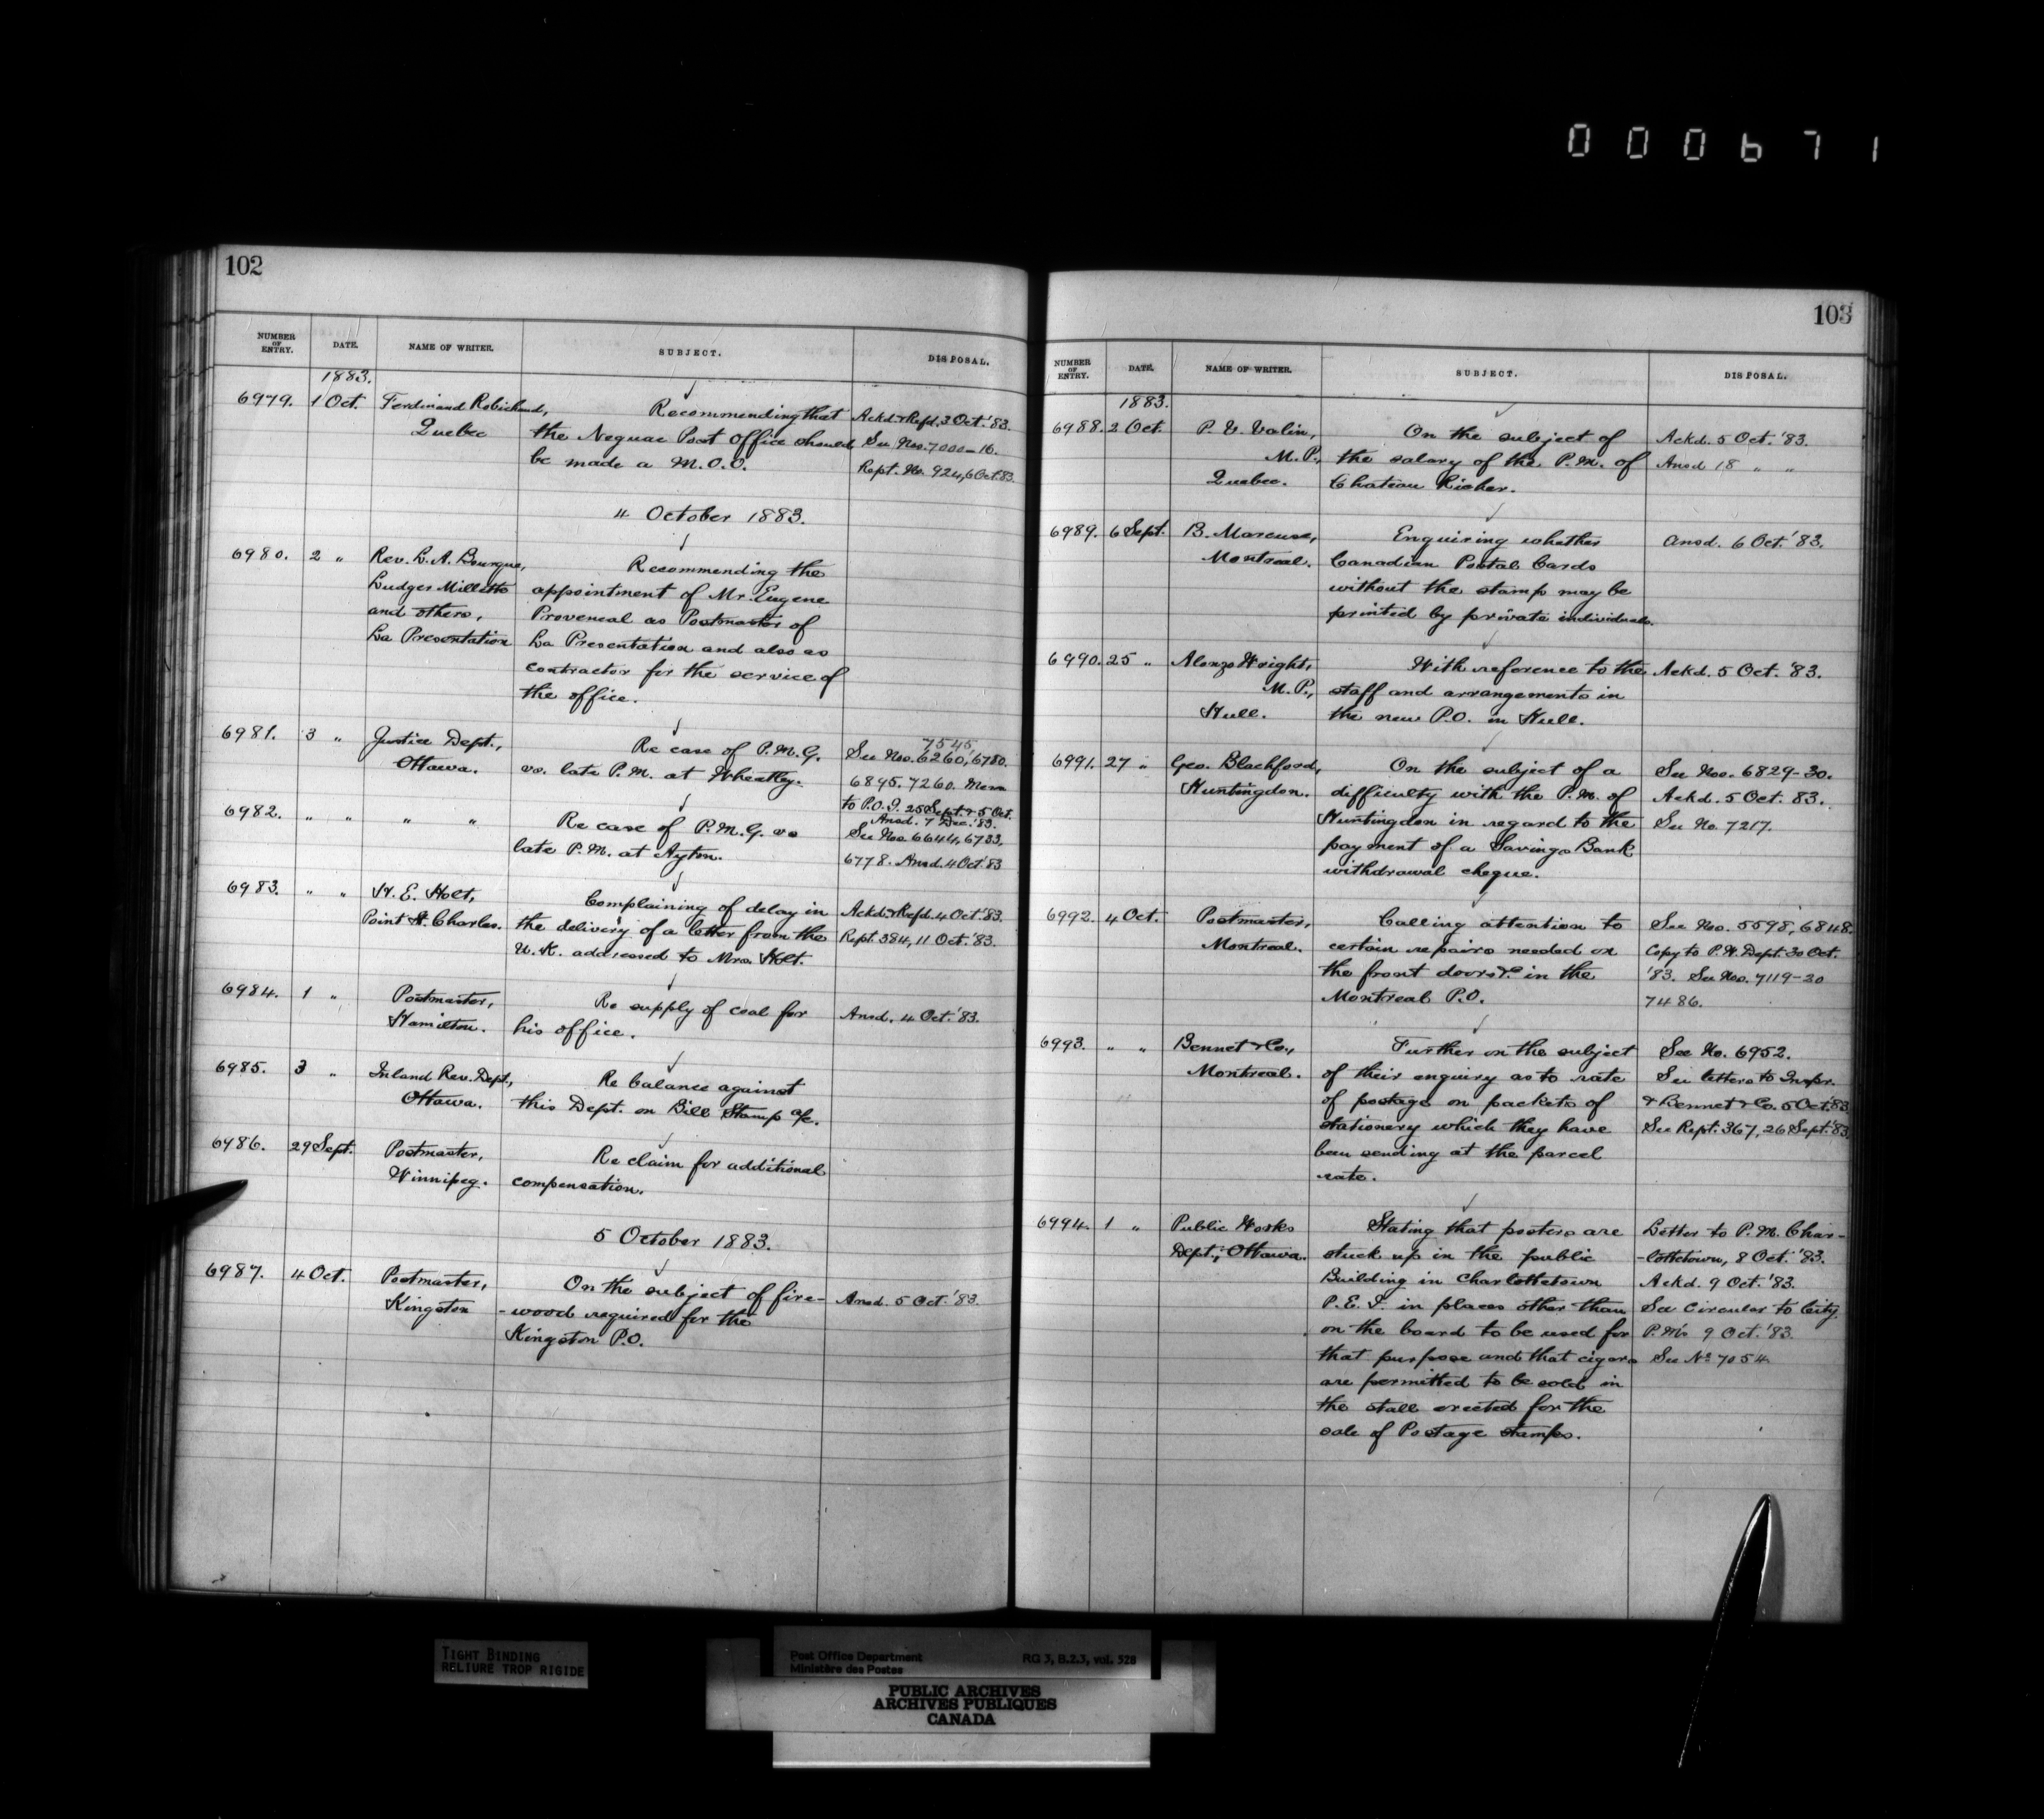 000671
102
NUMBER OF ENTRY. DATE. NAME OF WRITER. SUBJECT. DISPOSAL.
1883.
6979. 1 Oct. Ferdinand Robichaud, Recommending that Ackd & Refd. 3 Oct. '83.
Quebec the Neguac Post Office should See Nos. 7000-16.
be made a M.O.O. Rept. No. 924, 6 Oct. 83.
4 October 1883.
6980. 2 " Rev. L. A. Bourque, Recommending the
Ludger Millette appointment of Mr. Eugene
and others, Provencal as Postmaster of
La Presentation La Presentation and also as
contractor for the service of
the office.
6981. 3 " Justice Dept., Re case of P.M.G. See Nos. 6260, 6780. 7545,
Ottawa. vs. late P.M. at Wheatley. 6895. 7260. Mem
to P.O.I. 25 Sept. & 5 Oct.
Ansd. 7 Dec. '83.
6982. " " " " Re case of P.M.G. vs See No. 6644, 6733,
late P.M. at Ayton. 6778. Ansd. 4 Oct. '83
6983. " " H. E. Holt, Complaining of delay in Ackd & Refd. 4 Oct. '83.
Point St. Charles. the delivery of a letter from the Rept. 384, 11 Oct. '83.
U.K. addressed to Mrs. Holt.
6984. 1 " Postmaster, Re supply of coal for Ansd. 4 Oct. '83.
Hamilton. his office.
6985. 3 " Inland Rev. Dept., Re balance against
Ottawa. this Dept. on Bill Stamp a/c.
6986. 29 Sept. Postmaster, Re claim for additional
Winnipeg. compensation.
5 October 1883.
6987. 4 Oct. Postmaster, On the subject of fire- Ansd. 5 Oct. '83.
Kingston -wood required for the
Kingston P.O.
103
NUMBER OF ENTRY. DATE. NAME OF WRITER. SUBJECT. DISPOSAL.
1883.
6988. 2 Oct. P. V. Valin, On the subject of Ackd. 5 Oct. '83.
M.P., the salary of the P.M. of Ansd 18 " "
Quebec. Chateau Richer.
6989. 6 Sept. B. Marcuse, Enquiring whether Ansd. 6 Oct. '83.
Montreal. Canadian Postal Cards
without the stamp may be
printed by private individuals.
6990. 25 " Alonzo Wright, With reference to the Ackd. 5 Oct. '83.
M.P., staff and arrangements in
Hull. the new P.O. in Hull.
6991. 27 " Geo. Blachford, On the subject of a See Nos. 6829-30.
Huntingdon. difficulty with the P.M. of Ackd. 5 Oct. 83.
Huntingdon in regard to the See No. 7217.
payment of a Savings Bank
withdrawal cheque.
6992. 4 Oct. Postmaster, Calling attention to See Nos. 5598, 6848.
Montreal. certain repairs needed on Copy to P.W. Dept. 30 Oct.
the front doors &c in the '83. See Nos. 7119-20
Montreal P.O. 7486.
6993. " " Bennet & Co., Further on the subject See No. 6952.
Montreal. of their enquiry as to rate See letters to Inspr.
of postage on packets of & Bennet & Co. 5 Oct. '83
stationery which they have See Rept. 367, 26 Sept. '83.
been sending at the parcel
rate.
6994. 1 " Public Works Stating that posters are Letter to P.M. Char-
Dept., Ottawa. stuck up in the public -lottetown, 8 Oct. '83.
Building in Charlottetown Ackd. 9 Oct. '83.
P.E.I. in places other than See Circular to City
on the board to be used for P.M's 9 Oct. '83.
that purpose and that cigars See No. 7054
are permitted to be sold in
the stall erected for the
sale of Postage stamps.
TIGHT BINDING
RELIURE TROP RIGIDE
Post Office Department RG 3, B.2.3, vol. 528
Ministère des Postes
PUBLIC ARCHIVES
ARCHIVES PUBLIQUES
CANADA